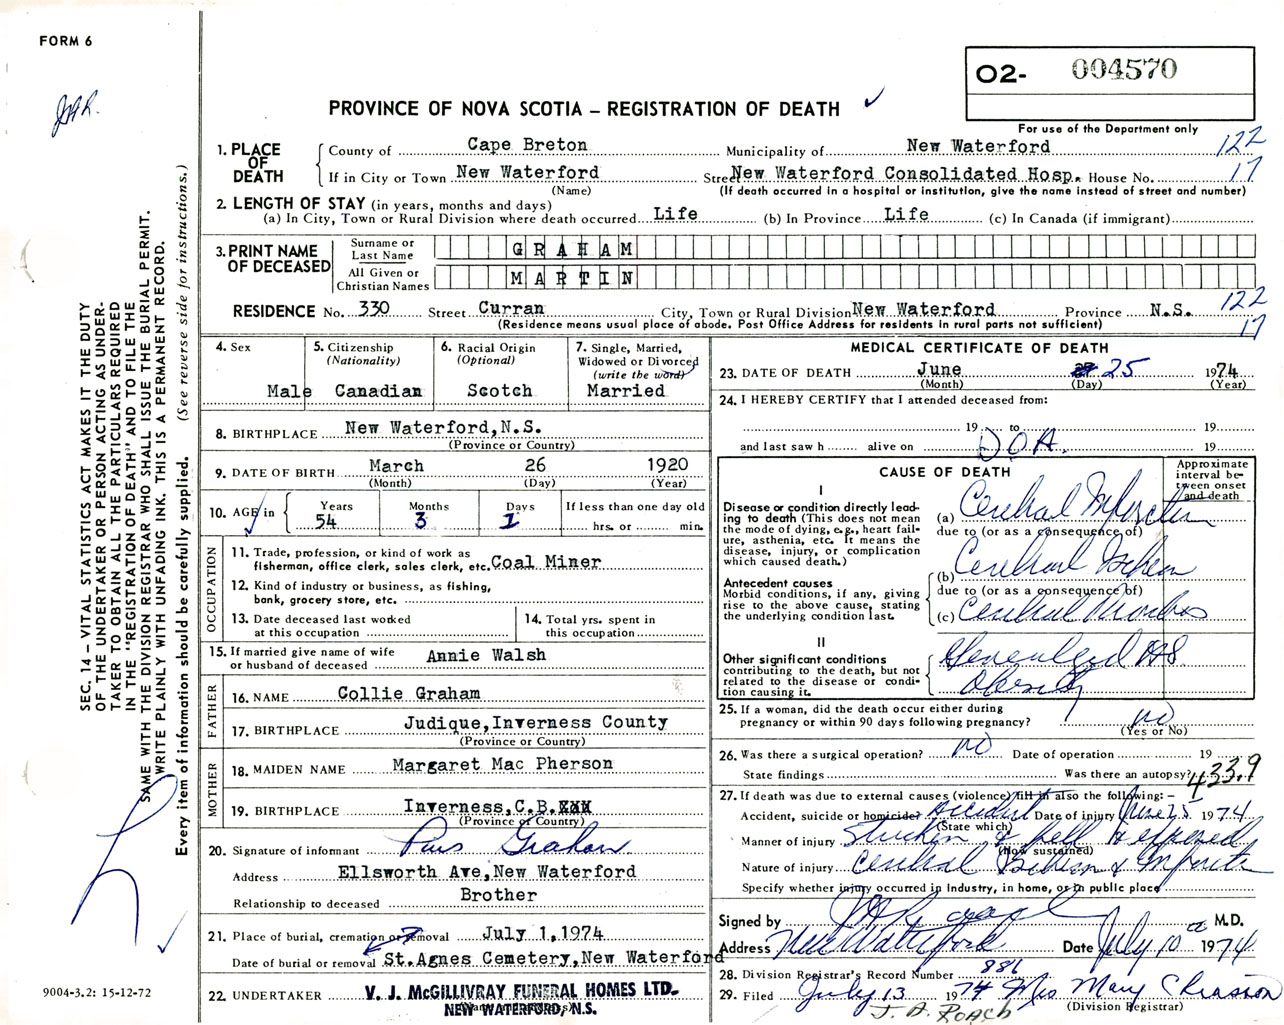 FORM 6
O2- 004570
For use of the Department only
PROVINCE OF NOVA SCOTIA – REGISTRATION OF DEATH
SEC. 14 – VITAL STATISTICS ACT MAKES IT THE DUTY
OF THE UNDERTAKER OR PERSON ACTING AS UNDER-
TAKER TO OBTAIN ALL THE PARTICULARS REQUIRED
IN THE "REGISTRATION OF DEATH" AND TO FILE THE
SAME WITH THE DIVISION REGISTRAR WHO SHALL ISSUE THE BURIAL PERMIT.
WRITE PLAINLY WITH UNFADING INK. THIS IS A PERMANENT RECORD.
Every item of information should be carefully supplied. (See reverse side for instructions.)
1. PLACE OF DEATH
County of Cape Breton Municipality of New Waterford 122
If in City or Town New Waterford Street New Waterford Consolidated Hosp. House No. 17
(Name) (If death occurred in a hospital or institution, give the name instead of street and number)
2. LENGTH OF STAY (in years, months and days)
(a) In City, Town or Rural Division where death occurred Life (b) In Province Life (c) In Canada (if immigrant)
3. PRINT NAME OF DECEASED
Surname or Last Name GRAHAM
All Given or Christian Names MARTIN
RESIDENCE No. 330 Street Curran City, Town or Rural Division New Waterford Province N.S. 122
(Residence means usual place of abode. Post Office Address for residents in rural parts not sufficient) 17
4. Sex Male
5. Citizenship (Nationality) Canadian
6. Racial Origin (Optional) Scotch
7. Single, Married, Widowed or Divorced (write the word) Married
8. BIRTHPLACE New Waterford,N.S.
(Province or Country)
9. DATE OF BIRTH March 26 1920
(Month) (Day) (Year)
10. AGE in Years 54 Months 3 Days 1 If less than one day old hrs. or min.
OCCUPATION
11. Trade, profession, or kind of work as
fisherman, office clerk, sales clerk, etc. Coal Miner
12. Kind of industry or business, as fishing,
bank, grocery store, etc.
13. Date deceased last worked
at this occupation
14. Total yrs. spent in
this occupation
15. If married give name of wife
or husband of deceased Annie Walsh
FATHER
16. NAME Collie Graham
17. BIRTHPLACE Judique,Inverness County
(Province or Country)
MOTHER
18. MAIDEN NAME Margaret Mac Pherson
19. BIRTHPLACE Inverness,C.B.XXX
(Province or Country)
20. Signature of informant Graham
Address Ellsworth Ave,New Waterford
Relationship to deceased Brother
21. Place of burial, cremation or removal July 1,1974
Date of burial or removal St.Agnes Cemetery,New Waterford
22. UNDERTAKER V. J. McGILLIVRAY FUNERAL HOMES LTD.
NEW WATERFORD, N.S.
9004-3.2: 15-12-72
MEDICAL CERTIFICATE OF DEATH
23. DATE OF DEATH June 25 1974
(Month) (Day) (Year)
24. I HEREBY CERTIFY that I attended deceased from:
19 to 19
and last saw h alive on D.O.A. 19
CAUSE OF DEATH
Approximate interval between onset and death
I
Disease or condition directly lead-
ing to death (This does not mean
the mode of dying, e.g., heart fail-
ure, asthenia, etc. It means the
disease, injury, or complication
which caused death.)
(a) Cerebral Infarction
due to (or as a consequence of)
Antecedent causes
Morbid conditions, if any, giving
rise to the above cause, stating
the underlying condition last.
(b) Cerebral Ischem
due to (or as a consequence of)
(c) Cerebral
II
Other significant conditions
contributing to the death, but not
related to the disease or condi-
tion causing it.
Generalized
Obesity
25. If a woman, did the death occur either during
pregnancy or within 90 days following pregnancy? no
(Yes or No)
26. Was there a surgical operation? no Date of operation 19
State findings Was there an autopsy? 433.9
27. If death was due to external causes (violence) fill in also the following: –
Accident, suicide or homicide? Accident Date of injury June 25 1974
(State which)
Manner of injury
(How sustained)
Nature of injury Cerebral
Specify whether injury occurred in Industry, in home, or in public place
Signed by M.D.
Address New Waterford Date July 10 1974
28. Division Registrar's Record Number 881
29. Filed July 13 1974 Mrs Mary Chiasson
(Division Registrar)
J. A. ROACH